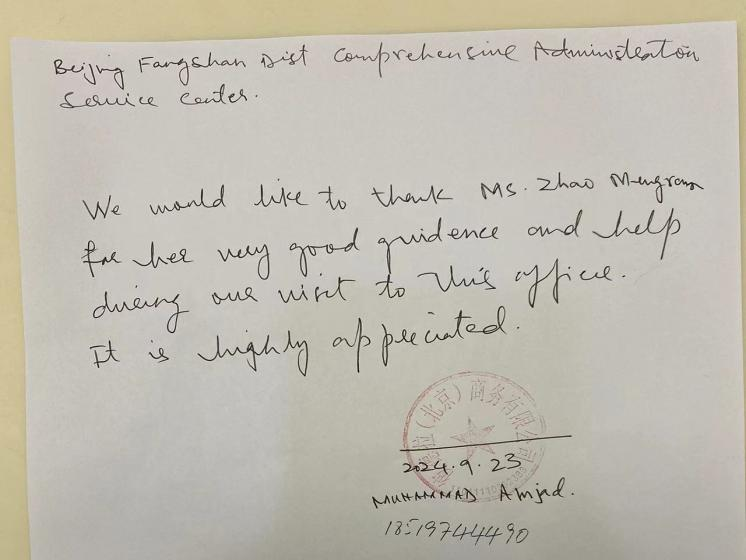 Beijing Fangshan Dist Comprehensive Administeation
Service Center.
We would like to thank Ms. Zhao Mengran
for her very good guidence and help
during our visit to this office.
It is highly appreciated.
拉(北京)商务有限公司
2024.9.23
MUHAMMAD Amjad.
18519744490